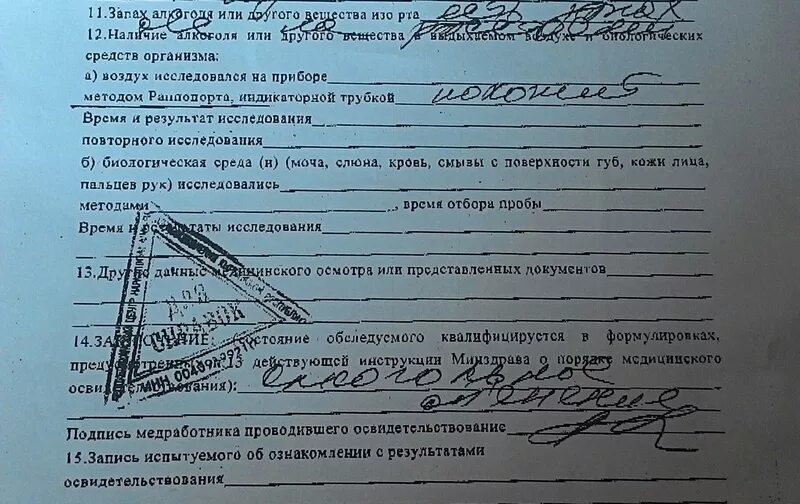 11.Запах алкоголя или другого вещества изо рта есть запах
12.Наличие алкоголя или другого вещества в выдыхаемом воздухе и биологических
средств организма:
а) воздух исследовался на приборе
методом Раппопорта, индикаторной трубкой
Время и результат исследования
повторного исследования
б) биологическая среда (и) (моча, слюна, кровь, смывы с поверхности губ, кожи лица,
пальцев рук) исследовались
методами , время отбора пробы
Время и результаты исследования
13.Другие данные медицинского осмотра или представленных документов
ДЛЯ
СПРАВОК
14.ЗАКЛЮЧЕНИЕ: (Состояние обследуемого квалифицируется в формулировках,
предусмотренных п.13 действующей инструкции Минздрава о порядке медицинского
освидетельствования): алкогольное
опьянение
Подпись медработника проводившего освидетельствование
15.Запись испытуемого об ознакомлении с результатами
освидетельствования